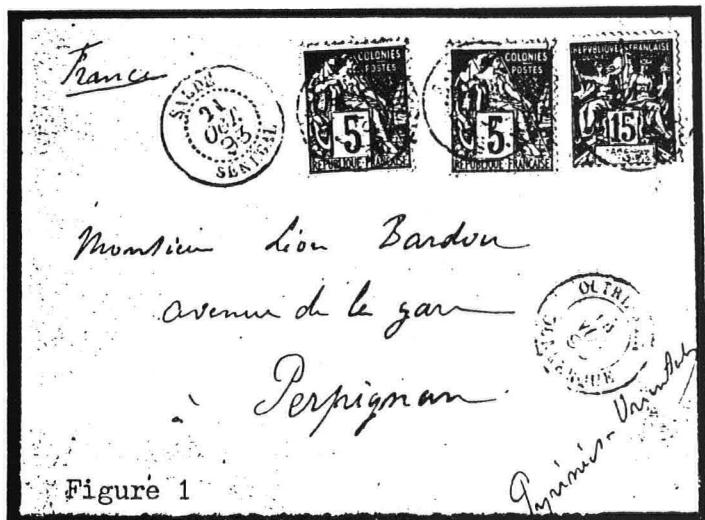 France
SALDÉ
21
OCT
93
SÉNÉGAL
COLONIES
POSTES
5
RÉPUBLIQUE FRANÇAISE
COLONIES
POSTES
5
RÉPUBLIQUE FRANÇAISE
RÉPUBLIQUE FRANÇAISE
15
Monsieur Léon Bardou
avenue de la gare
à Perpignan
Pyrénées-Orientales
Figure 1